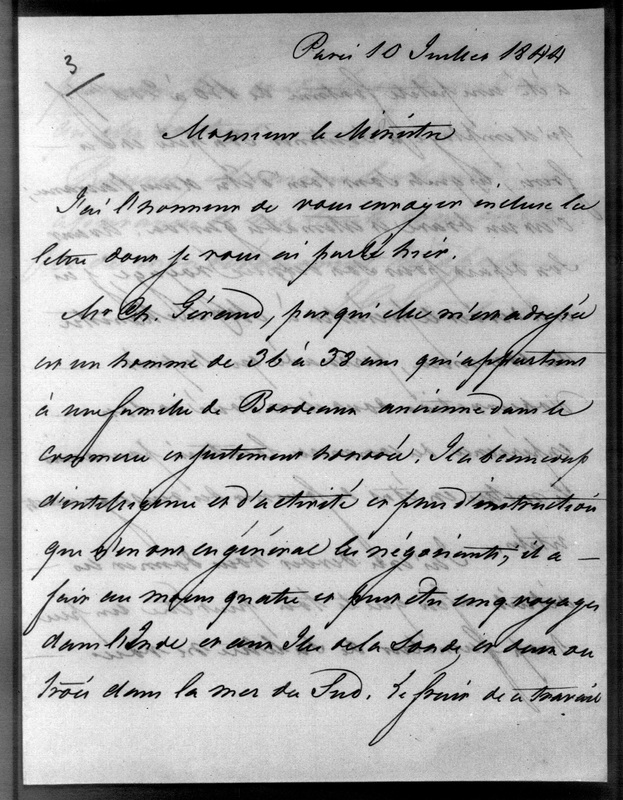 3
Paris 10 Juillet 1844
Monsieur le Ministre
J'ai l'honneur de vous envoyer incluse la
lettre dont je vous ai parlé hier.
Mr Ch. Géraud, par qui elle m'est adressée
est un homme de 36 à 38 ans qui appartient
à une famille de Bordeaux ancienne dans le
commerce et justement honorée. Il a beaucoup
d'intelligence et d'activité et plus d'instruction
que n'en ont en général les négociants, il a
fait au moins quatre et peut être cinq voyages
dans l'Inde et aux Iles de la Sonde, et deux ou
trois dans la mer du Sud. Le fruit de ce travail